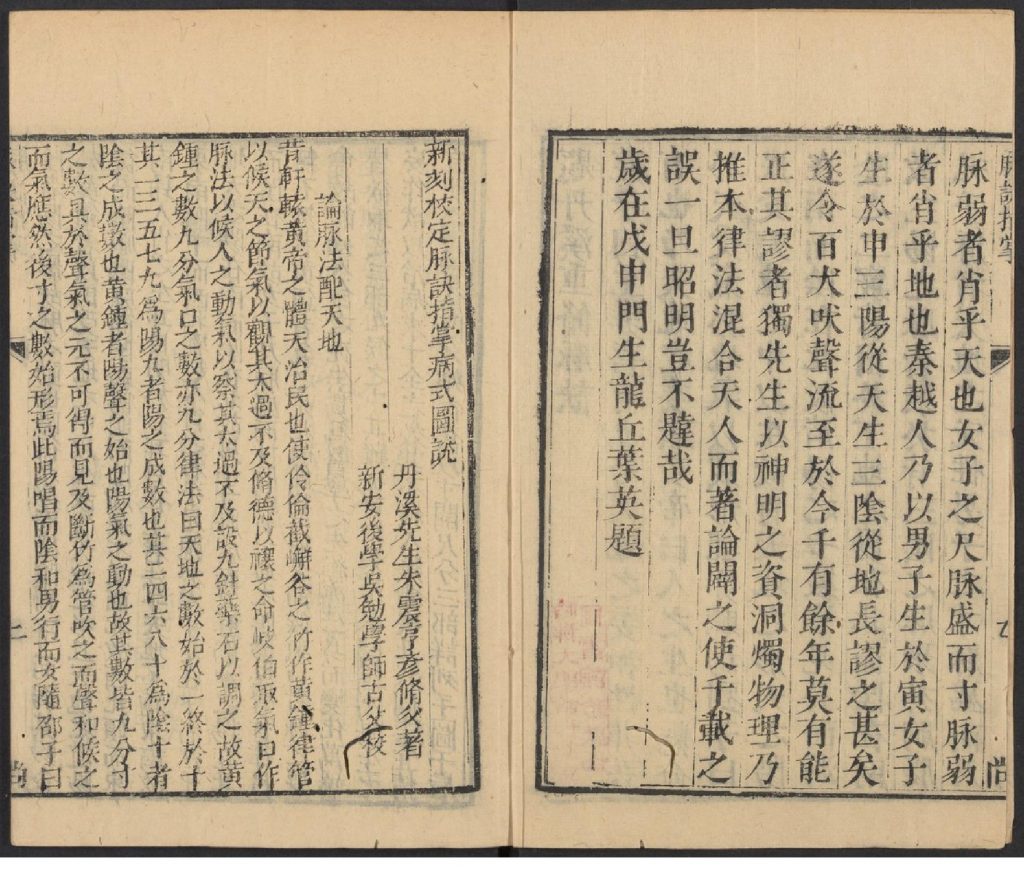 脉弱者肖乎天也女子之尺脉盛而寸脉弱
者肖乎地也秦越人乃以男子生於寅女子
生於申三陽從天生三陰從地長謬之甚矣
遂令百犬吠聲流至於今千有餘年莫有能
正其謬者獨先生以神明之資洞燭物理乃
推本律法混合天人而著論闢之使千載之
誤一旦昭明豈不韙哉
歲在戊申門生龍丘葉英題
新刻校定脉訣指掌病式圖說
丹溪先生朱震亨彥脩父著
新安後學吳勉學師古父校
論脉法配天地
昔軒轅黃帝之體天治民也使伶倫截嶰谷之竹作黃鍾律管
以候天之節氣以觀其太過不及脩德以禳之命岐伯取氣口作
脉法以候人之動氣以察其太過不及設九針藥石以調之故黃
鍾之數九分氣口之數亦九分律法曰天地之數始於一終於十
其一三五七九爲陽九者陽之成數也其二四六八十爲陰十者
陰之成數也黃鍾者陽聲之始也陽氣之動也故其數皆九分寸
之數具於聲氣之元不可得而見及斷竹爲管吹之而聲和候之
而氣應然後寸之數始形焉此陽唱而陰和男行而女隨邵子曰